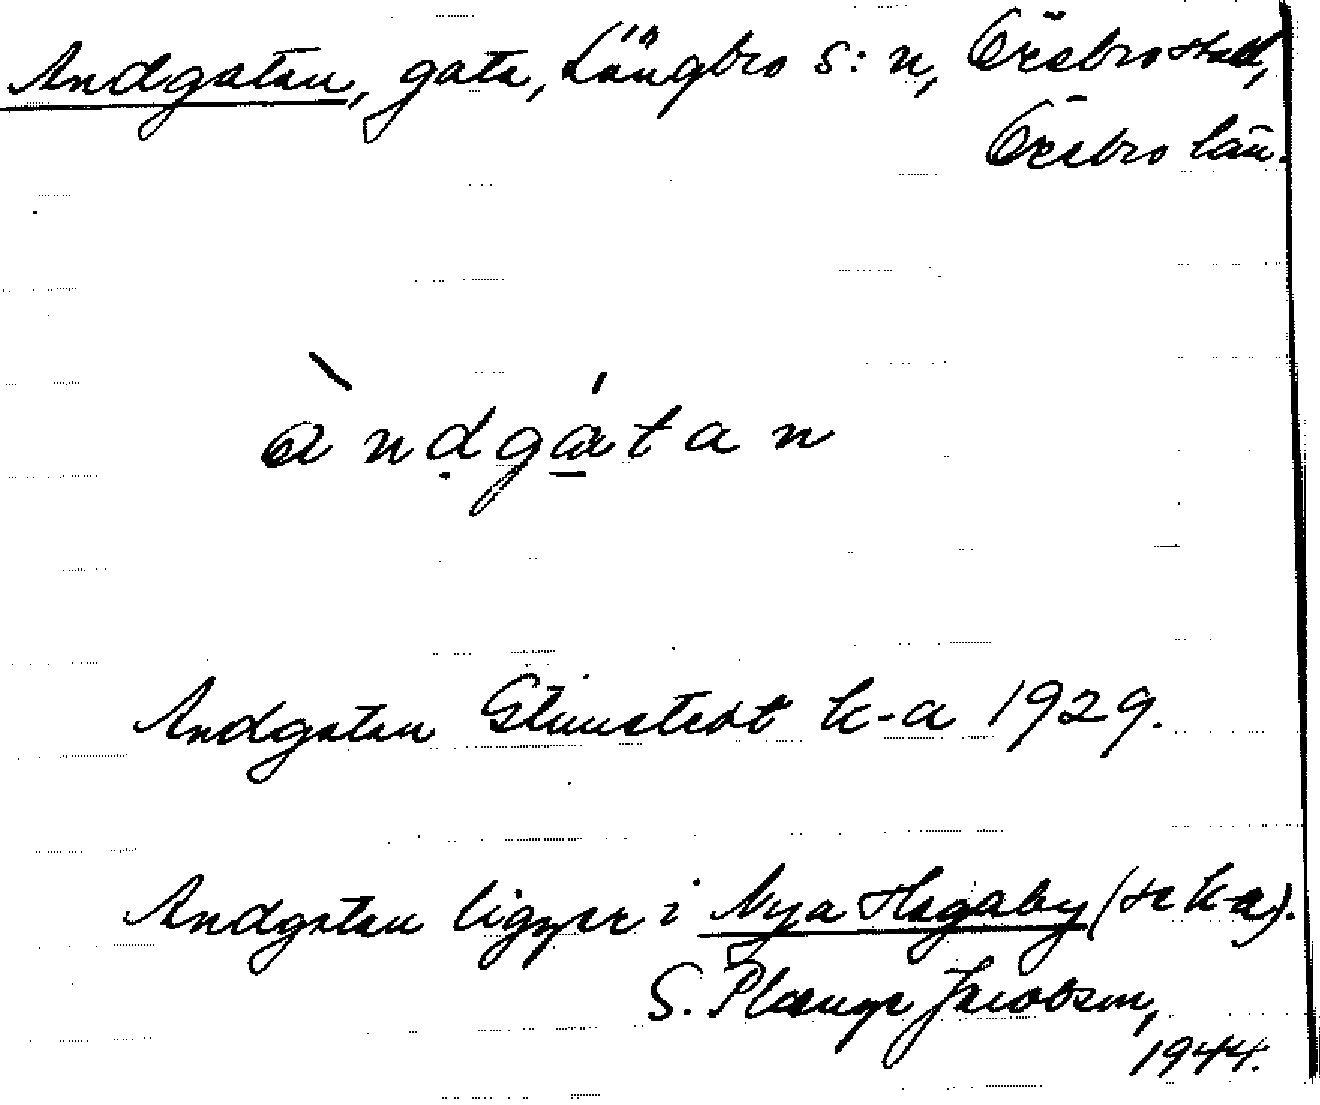 Andgatan, gata, Längbro s:n, Örebro stad,
Örebro län.
àndgátan
Andgatan Glimstedt k-a 1929.
Andgatan ligger i Nya Hagaby (se k-a).
S. Plænge Jacobson,
1944.